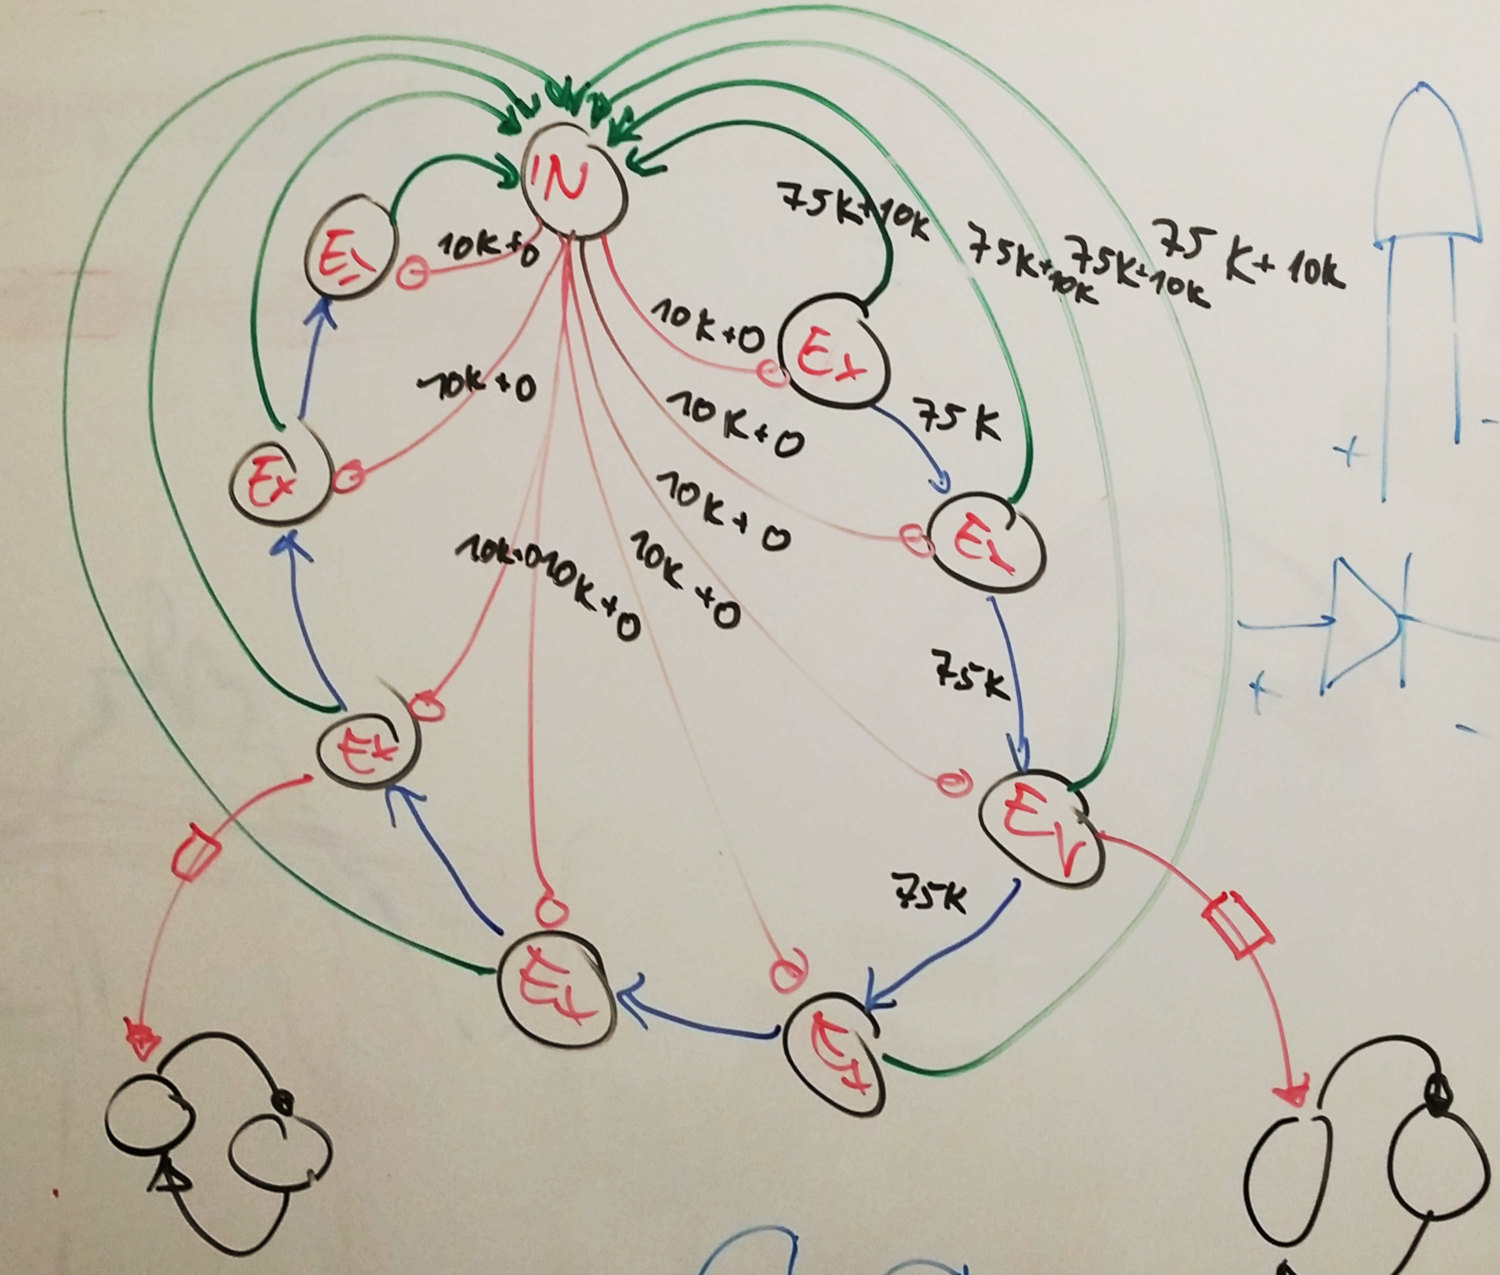 IN
75K+10K
75K+10K
75K+10K
75K+10K
Ex
10K+0
10K+0
Ex
10K+0
10K+0
75K
Ex
10K+0
Ex
10K+0
10K+0
10K+0
75K
Ex
Ex
75K
Ex
Ex
+
-
+
-